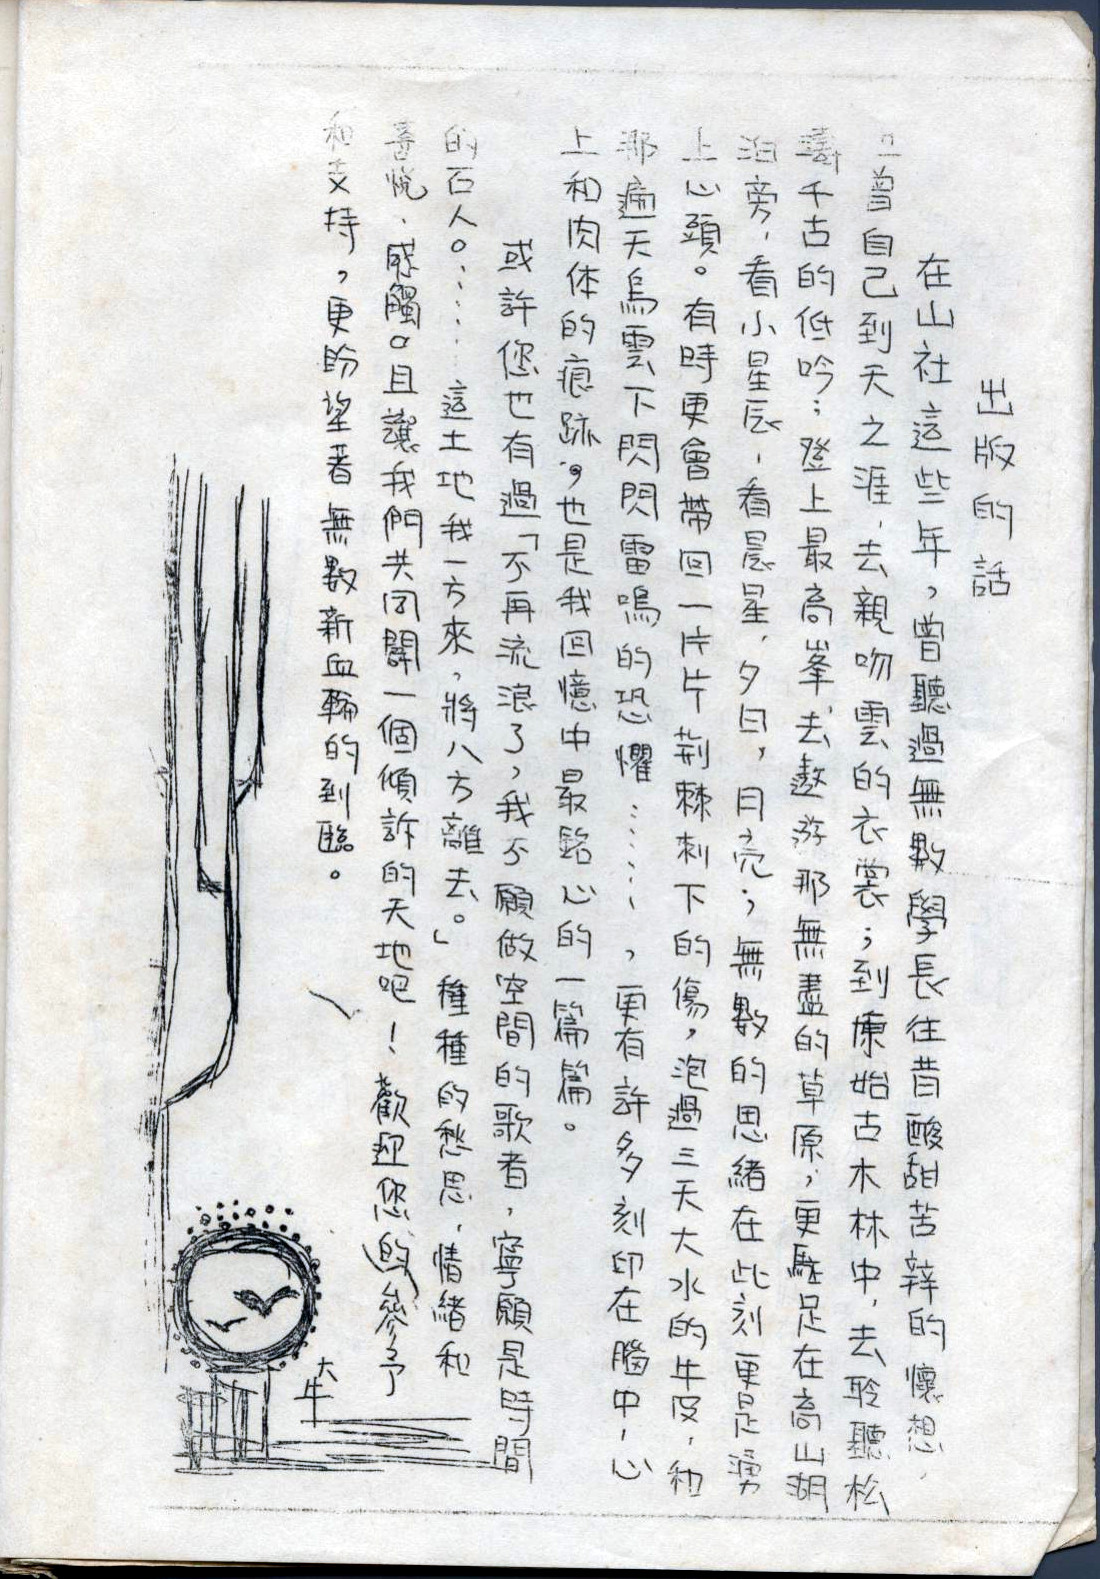 出版的話
在山社這些年，曾聽過無數學長往昔酸甜苦辣的懷想，
曾自己到天之涯，去親吻雲的衣裳；到原始古木林中，去聆聽松
濤千古的低吟；登上最高峯，去遨游那無盡的草原，更駐足在高山湖
泊旁，看小星辰，看晨星，夕日，月亮；無數的思緒在此刻更是湧
上心頭。有時更會帶回一片片荊棘刺下的傷，泡過三天大水的牛皮，和
那遍天烏雲下閃閃雷鳴的恐懼……，更有許多刻印在腦中，心
上和肉体的痕跡。也是我回憶中最銘心的一篇篇。
或許您也有過「不再流浪了，我不願做空間的歌者，寧願是時間
的石人。……這土地我一方來，將八方離去。」種種的愁思，情緒和
喜悅、感觸。且讓我們共同闢一個傾訴的天地吧！歡迎您的參予
和支持，更盼望著無數新血輪的到臨。
大牛